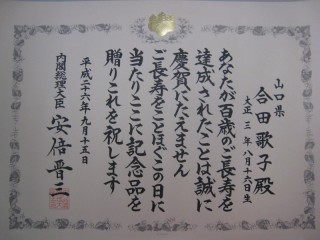 山口県
合田歌子殿
大正三年八月十六日生
あなたが百歳のご長寿を
達成されたことは誠に
慶賀にたえません
ご長寿をことほぐこの日に
当たりここに記念品を
贈りこれを祝します
平成二十六年九月十五日
内閣総理大臣 安倍晋三